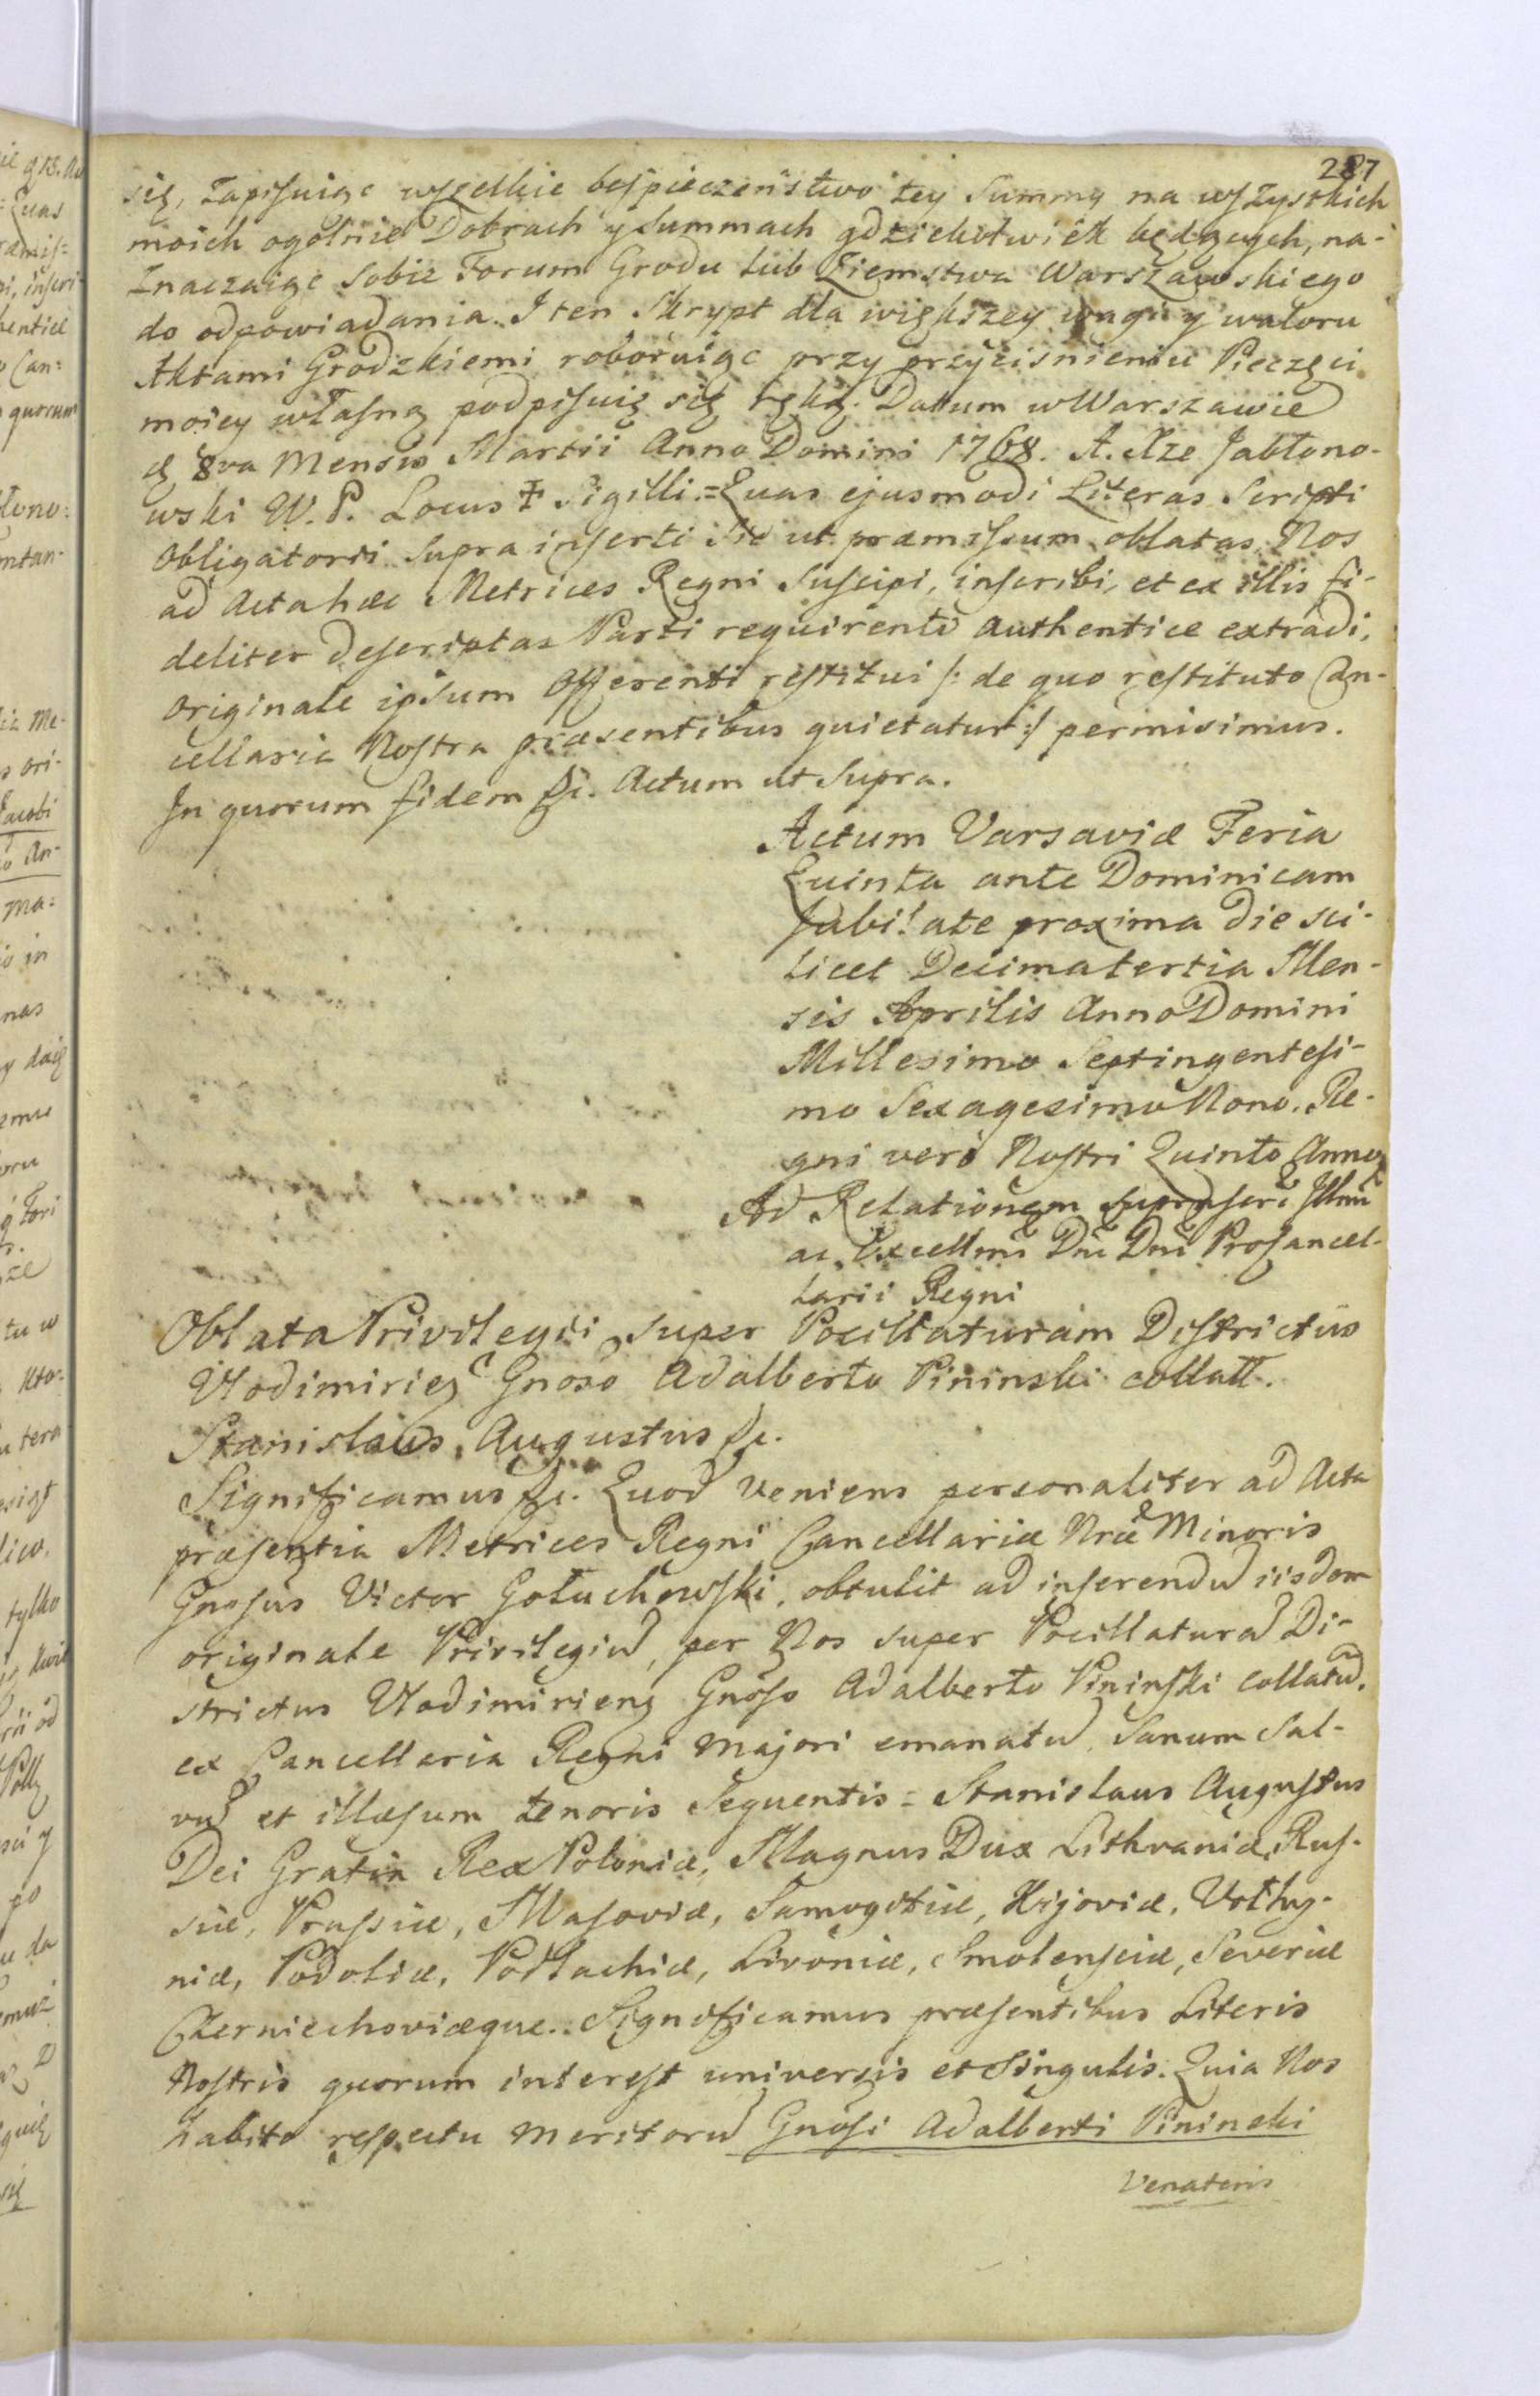 287
się, zapisuiąc wszelkie bespieczeństwo tey Summy na wszystkich
moich ogolnie Dobrach y Summach gdziekolwiek będących, na-
znaczaiąc sobie Forum Grodu lub Ziemstwa Warszawskiego
do odpowiadania. I ten Skrypt dla większey wagi y waloru
Aktami Grodzkiemi roboruiąc przy przyciśnieniu Pieczęci
moiey własną podpisuię się ręką. Dattum w Warszawie
d 8va Mensis Martii Anno Domini 1768. A. Xże Jabłono-
wski W. P. Locus ‡ Sigilli.=Quas ejusmodi Literas Scripti
Obligatorii supra inserti sic ut præmissum oblatas Nos
ad Acta hæc Metrices Regni suscipi, inscribi, et ex illis fi-
deliter descriptas Parti requirenti authentice extradi,
originale ipsum Offerenti restitui /: de quo restituto Can-
cellaria Nostra præsentibus quietatur :/ permisimus.
In quorum fidem &c. Actum ut Supra.
Actum Varsaviæ Feria
Quinta ante Dominicam
Jubilate proxima die sci-
licet Decimatertia Men-
sis Aprilis Anno Domini
Millesimo Septingentesi-
mo Sexagesimo Nono. Re-
gni vero Nostri Quinto Anno
Ad Relationem suprascri Illmi
ac Excellmi Dni Dni Procancel-
larii Regni
Oblata Privilegii super Pocillaturam Districtus
Vlodimirien Gnoso Adalberto Pininski collatt.
Stanislaus Augustus &c.
Significamus &c. Quod veniens personaliter ad Acta
præsentia Metrices Regni Cancellariæ Nræ Minoris
Gnosus Victor Gołuchowski, obtulit ad inserendū iisdem
originale Privilegiū, per Nos super Pocillaturā Di-
strictus Vlodimirien Gnoso Adalberto Pininski collatū,
ex Cancellaria Regni Majori emanatū, Sanum Sal-
vū et illæsum tenoris sequentis = Stanislaus Augustus
Dei Gratia Rex Poloniæ, Magnus Dux Lithvaniæ, Rus-
siæ, Prussiæ, Masoviæ, Samogitiæ, Kijoviæ, Volhy-
niæ, Podoliæ, Podlachiæ, Livoniæ, Smolensciæ, Severiæ
Czerniechoviæque.. Significamus præsentibus Literis
Nostris quorum interest universis et singulis. Quia Nos
habito respectu meritorū Gnosi Adalberti Pininski
Venatoris